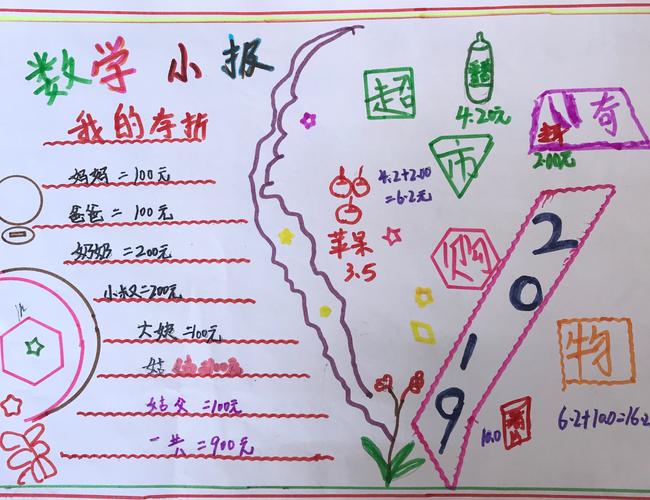 数学小报
我的存折
妈妈=100元
爸爸=100元
奶奶=200元
小叔=200元
大姨=100元
姑
姑父=100元
一共=900元
超
市
购
物
4.20元
奇
2.00元
4.2+2.00
=6.2元
苹果
3.5
2019
10.0
6.2+10.0=16.2